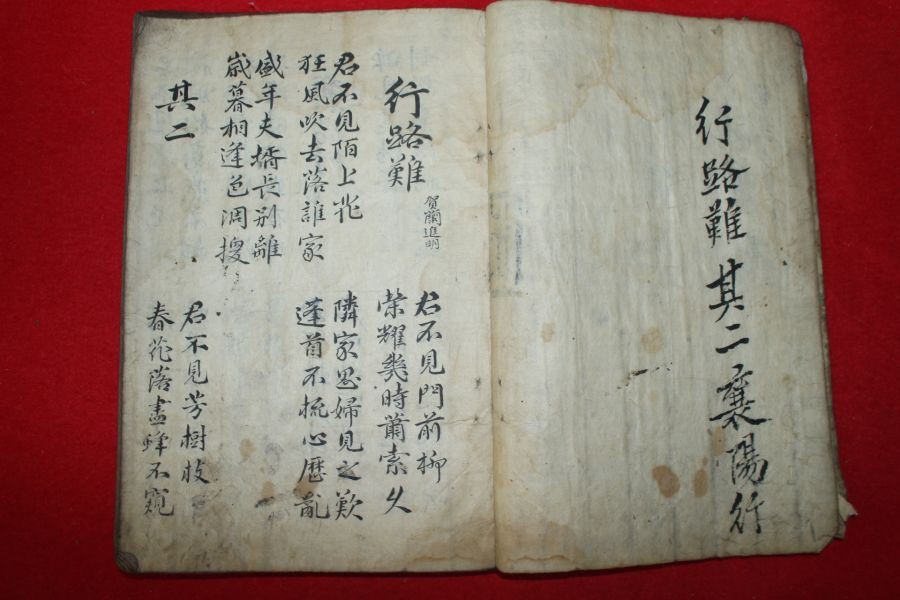 行路難 其二 襄陽行
行路難
賀蘭進明
君不見門前柳
榮耀幾時蕭索久
君不見陌上花
狂風吹去落誰家
隣家思婦見之歎
蓬首不梳心歷亂
盛年夫壻長別離
歲暮相逢色凋換
其二
君不見芳樹枝
春花落盡蜂不窺